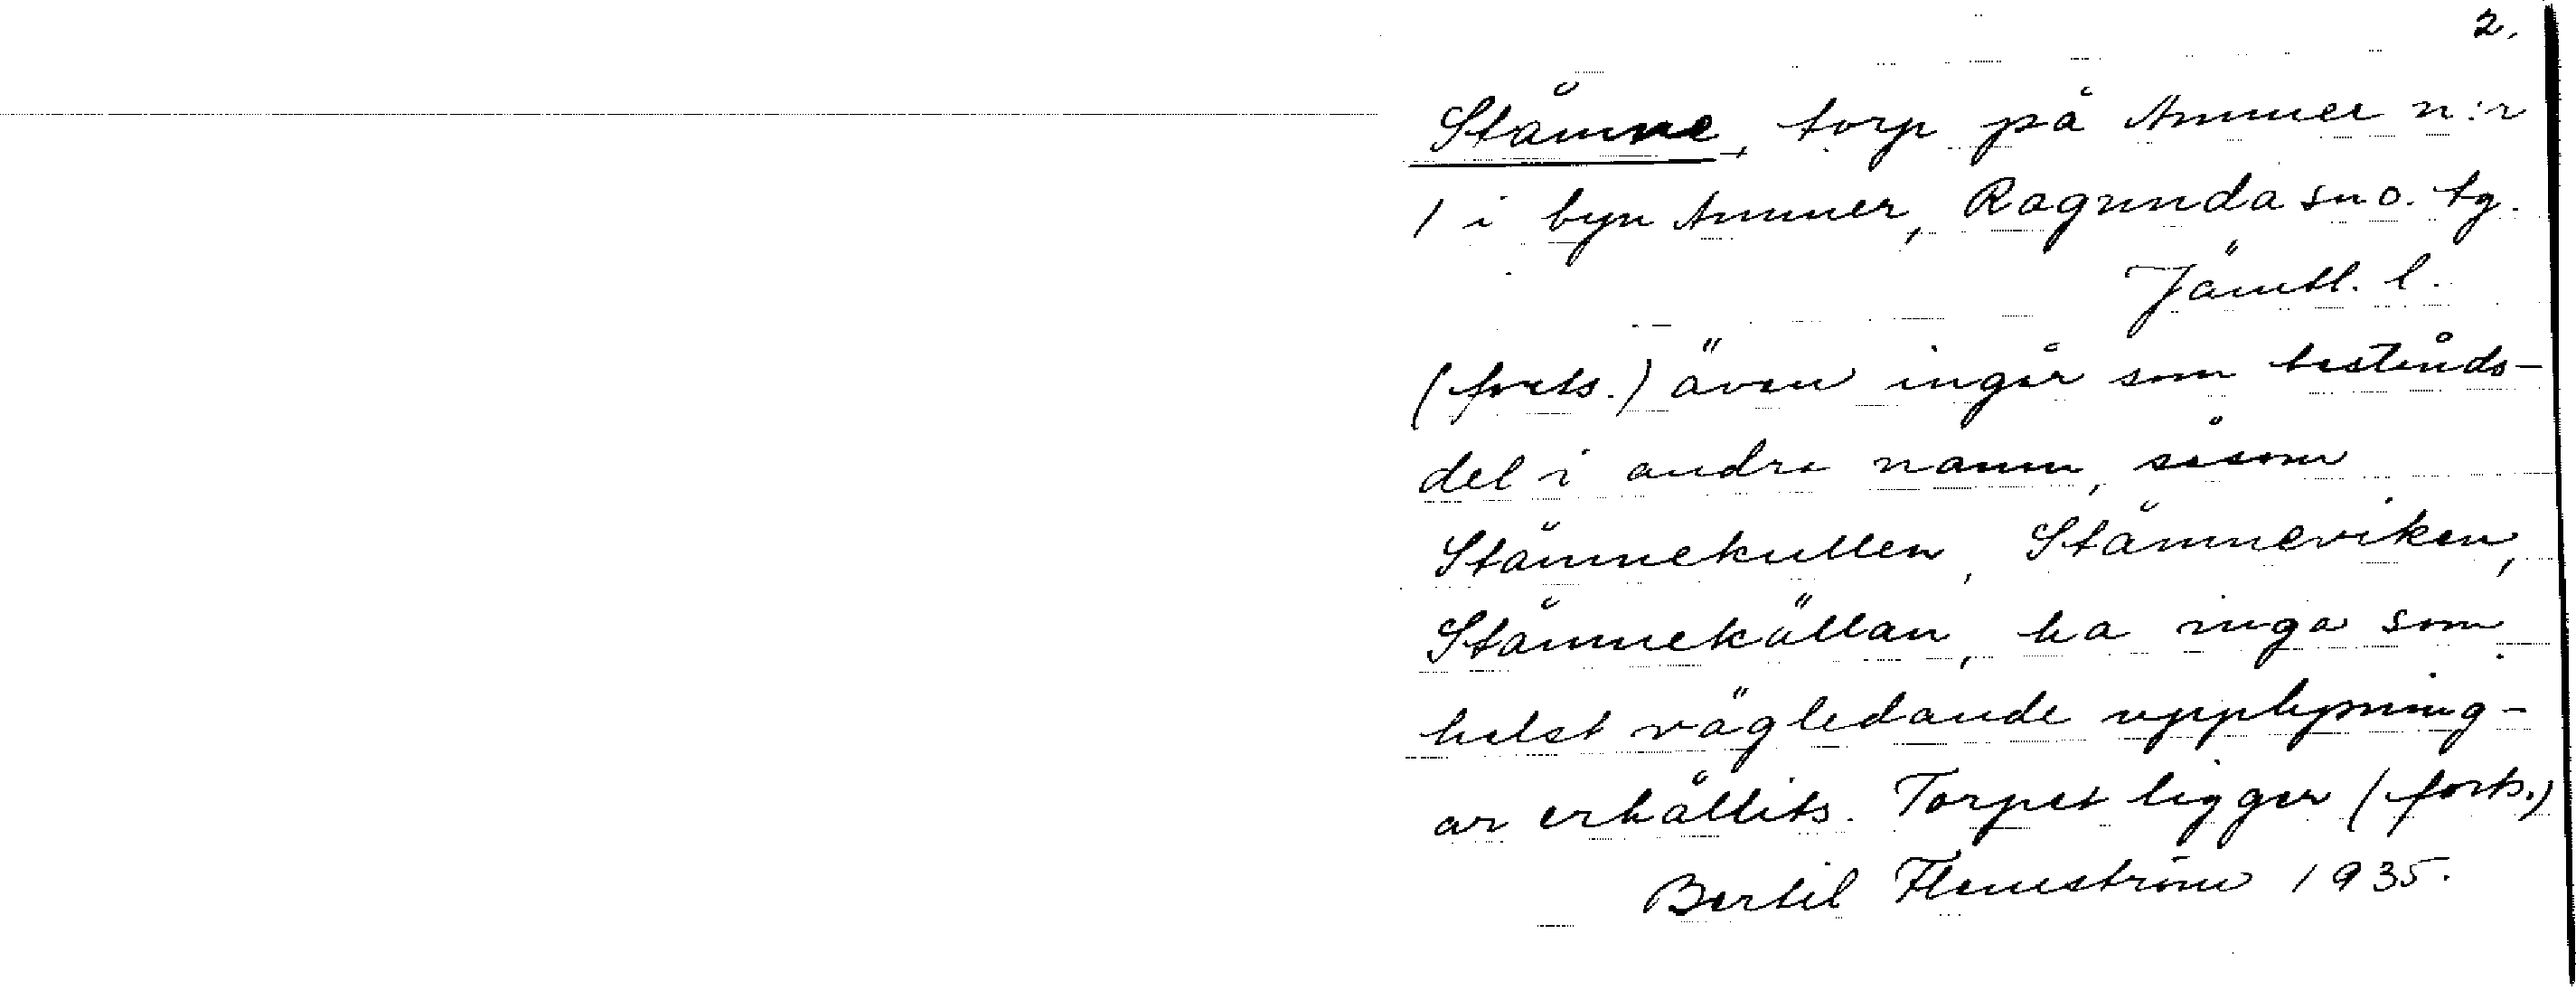 2.
Stämne, torp på Ammer n:r
1 i byn Ammer, Ragunda sn o. tg.
Jämtl. l.
(forts.) även ingår som bestånds-
del i andra namn, såsom
Stämnekullen, Stämneviken,
Stämnekällan, ha inga som
helst vägledande upplysning-
ar erhållits. Torpet ligger (forts.)
Bertil Flemström 1935.